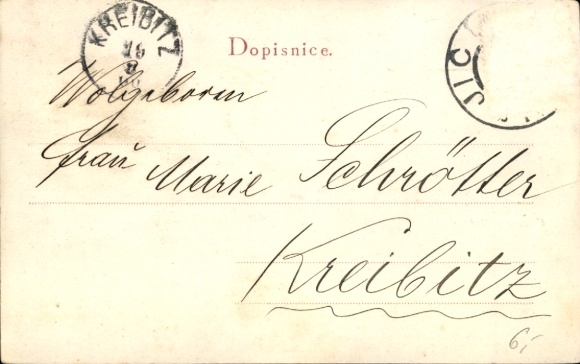 KREIBITZ
Dopisnice.
JIC
Wolgeboren
Frau Marie Schrötter
Kreibitz
6,-